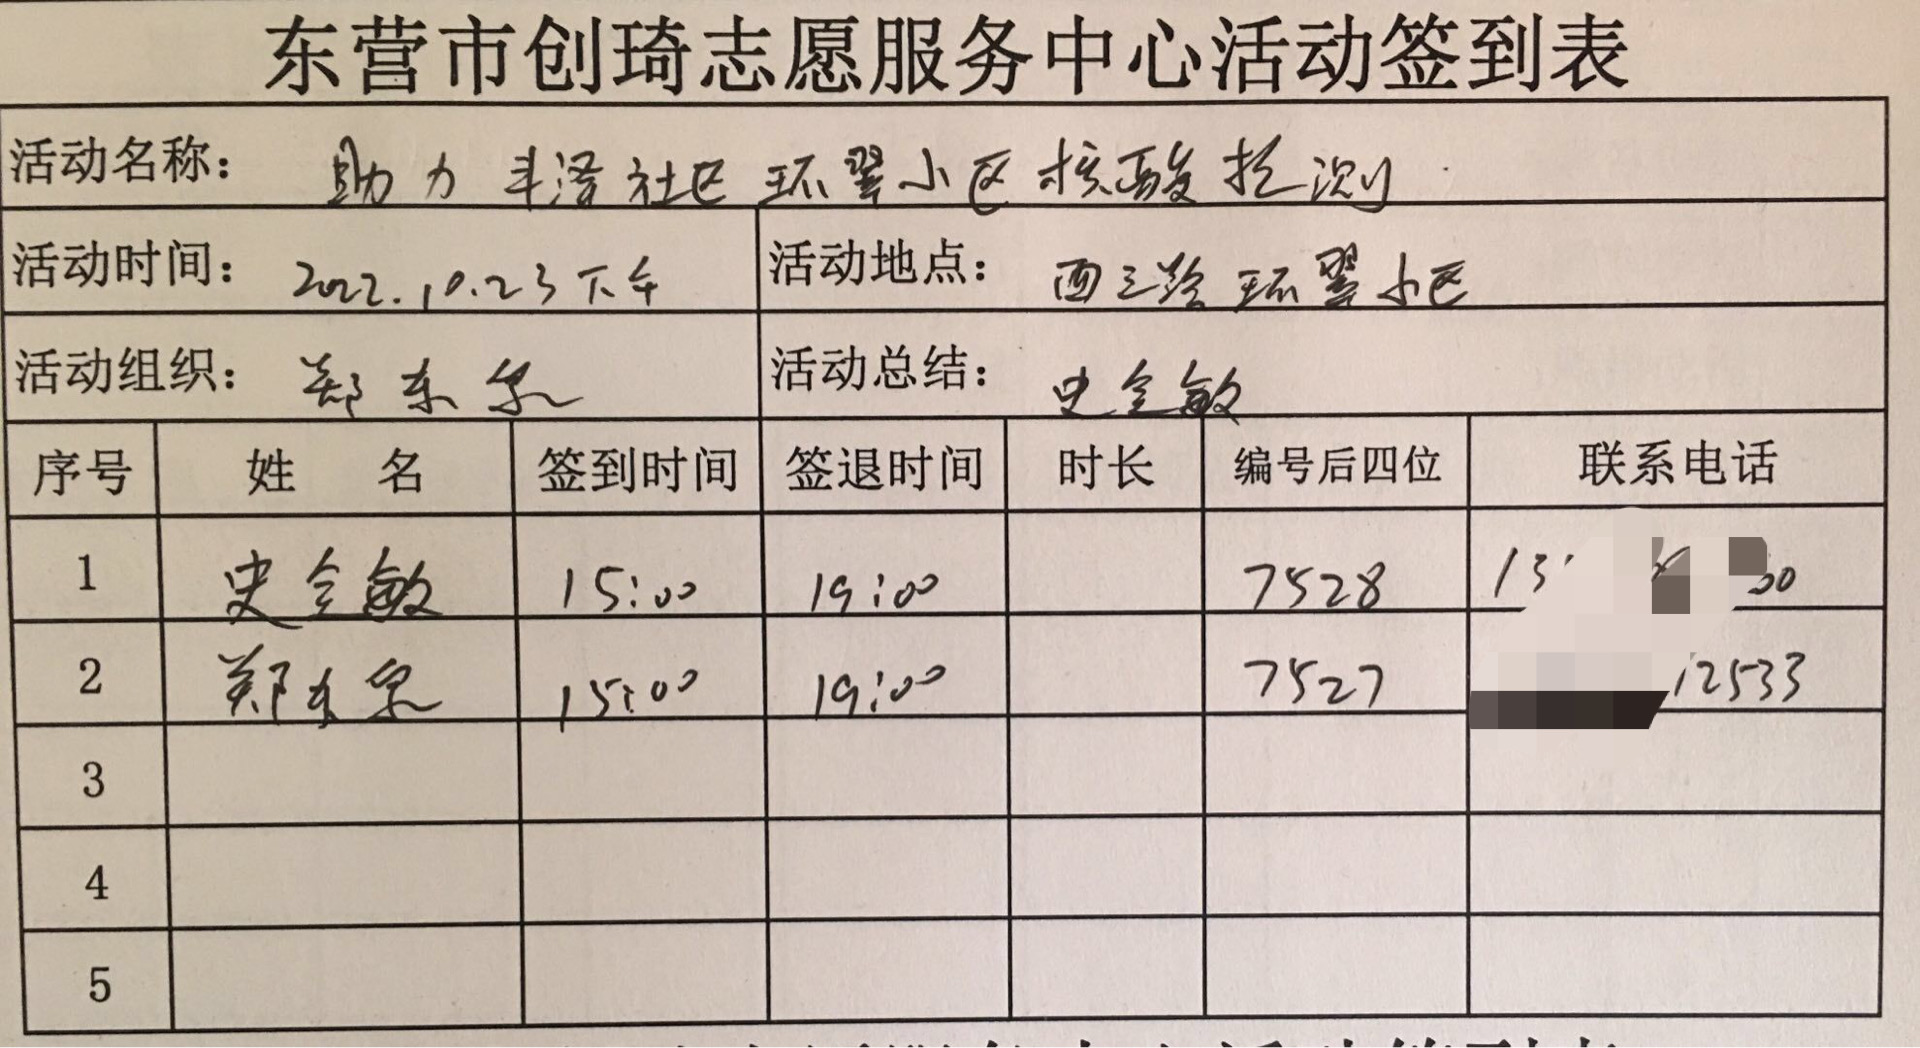 东营市创琦志愿服务中心活动签到表
活动名称： 助力丰泽社区环翠小区核酸抢测
活动时间： 2022.10.23下午 活动地点： 西三路环翠小区
活动组织： 郑东泉 活动总结： 史金敏
序号 姓 名 签到时间 签退时间 时长 编号后四位 联系电话
1 史金敏 15:00 19:00 7528
2 郑东泉 15:00 19:00 7527 12533
3
4
5